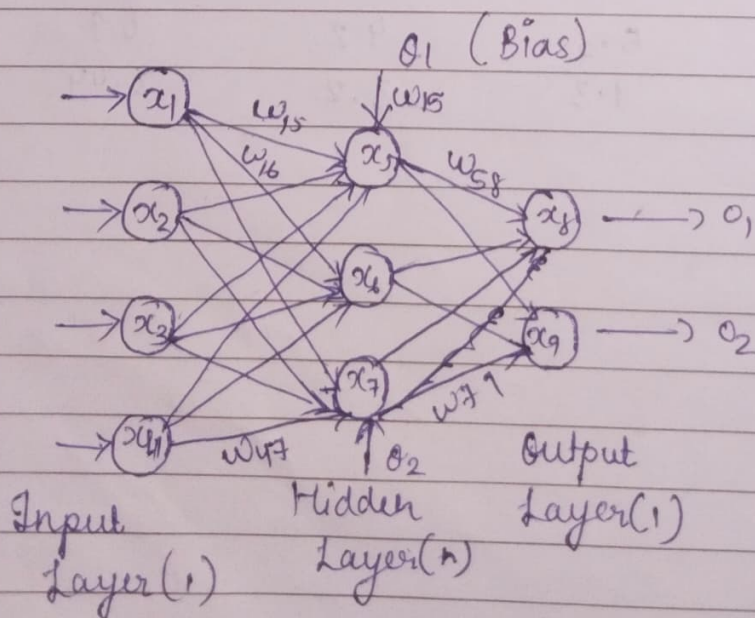 θ1 (Bias)
x1
w15
w15
w16
x5
w58
x2
x8
o1
x6
x2
x9
o2
x7
w79
x4
w47
θ2
Output
Layer(1)
Hidden
Layer(n)
Input
Layer(1)